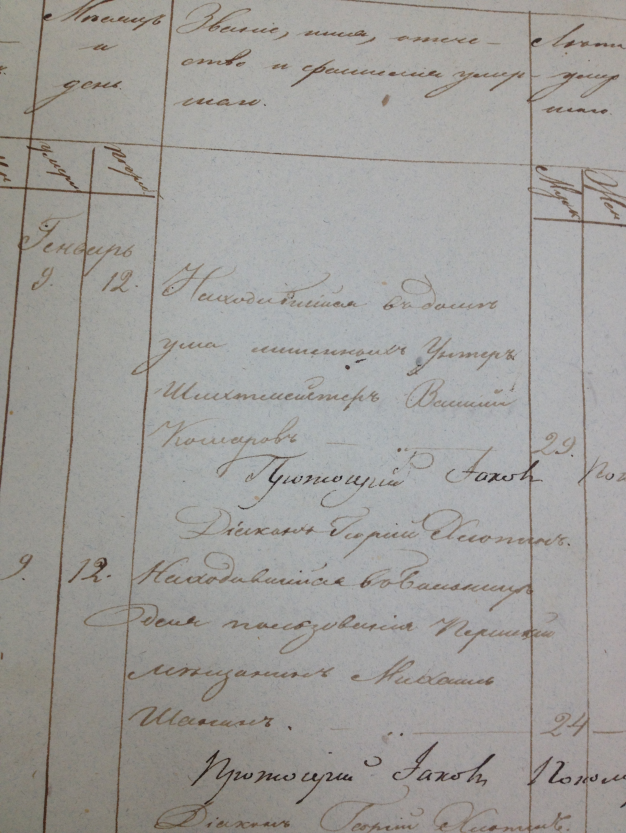 Мѣсяцъ
и
день.
Званіе, имя, отече-
ство и фамилія умер-
шаго.
Лѣта
умер
шаго.
умер
погр
Муж
Жен
Генварь
9. 12. Находившійся въ домѣ
ума лишенныхъ Унтеръ
Шихтмейстеръ Василій
Комаровъ 29.
Протоіерей Іаковъ
Діаконъ Георгій
9. 12. Находившійся въ больницѣ
для пользованія Пермскій
мѣщанинъ Михаилъ
Шанинъ. 24
Протоіерей Іаковъ
Діаконъ Георгій